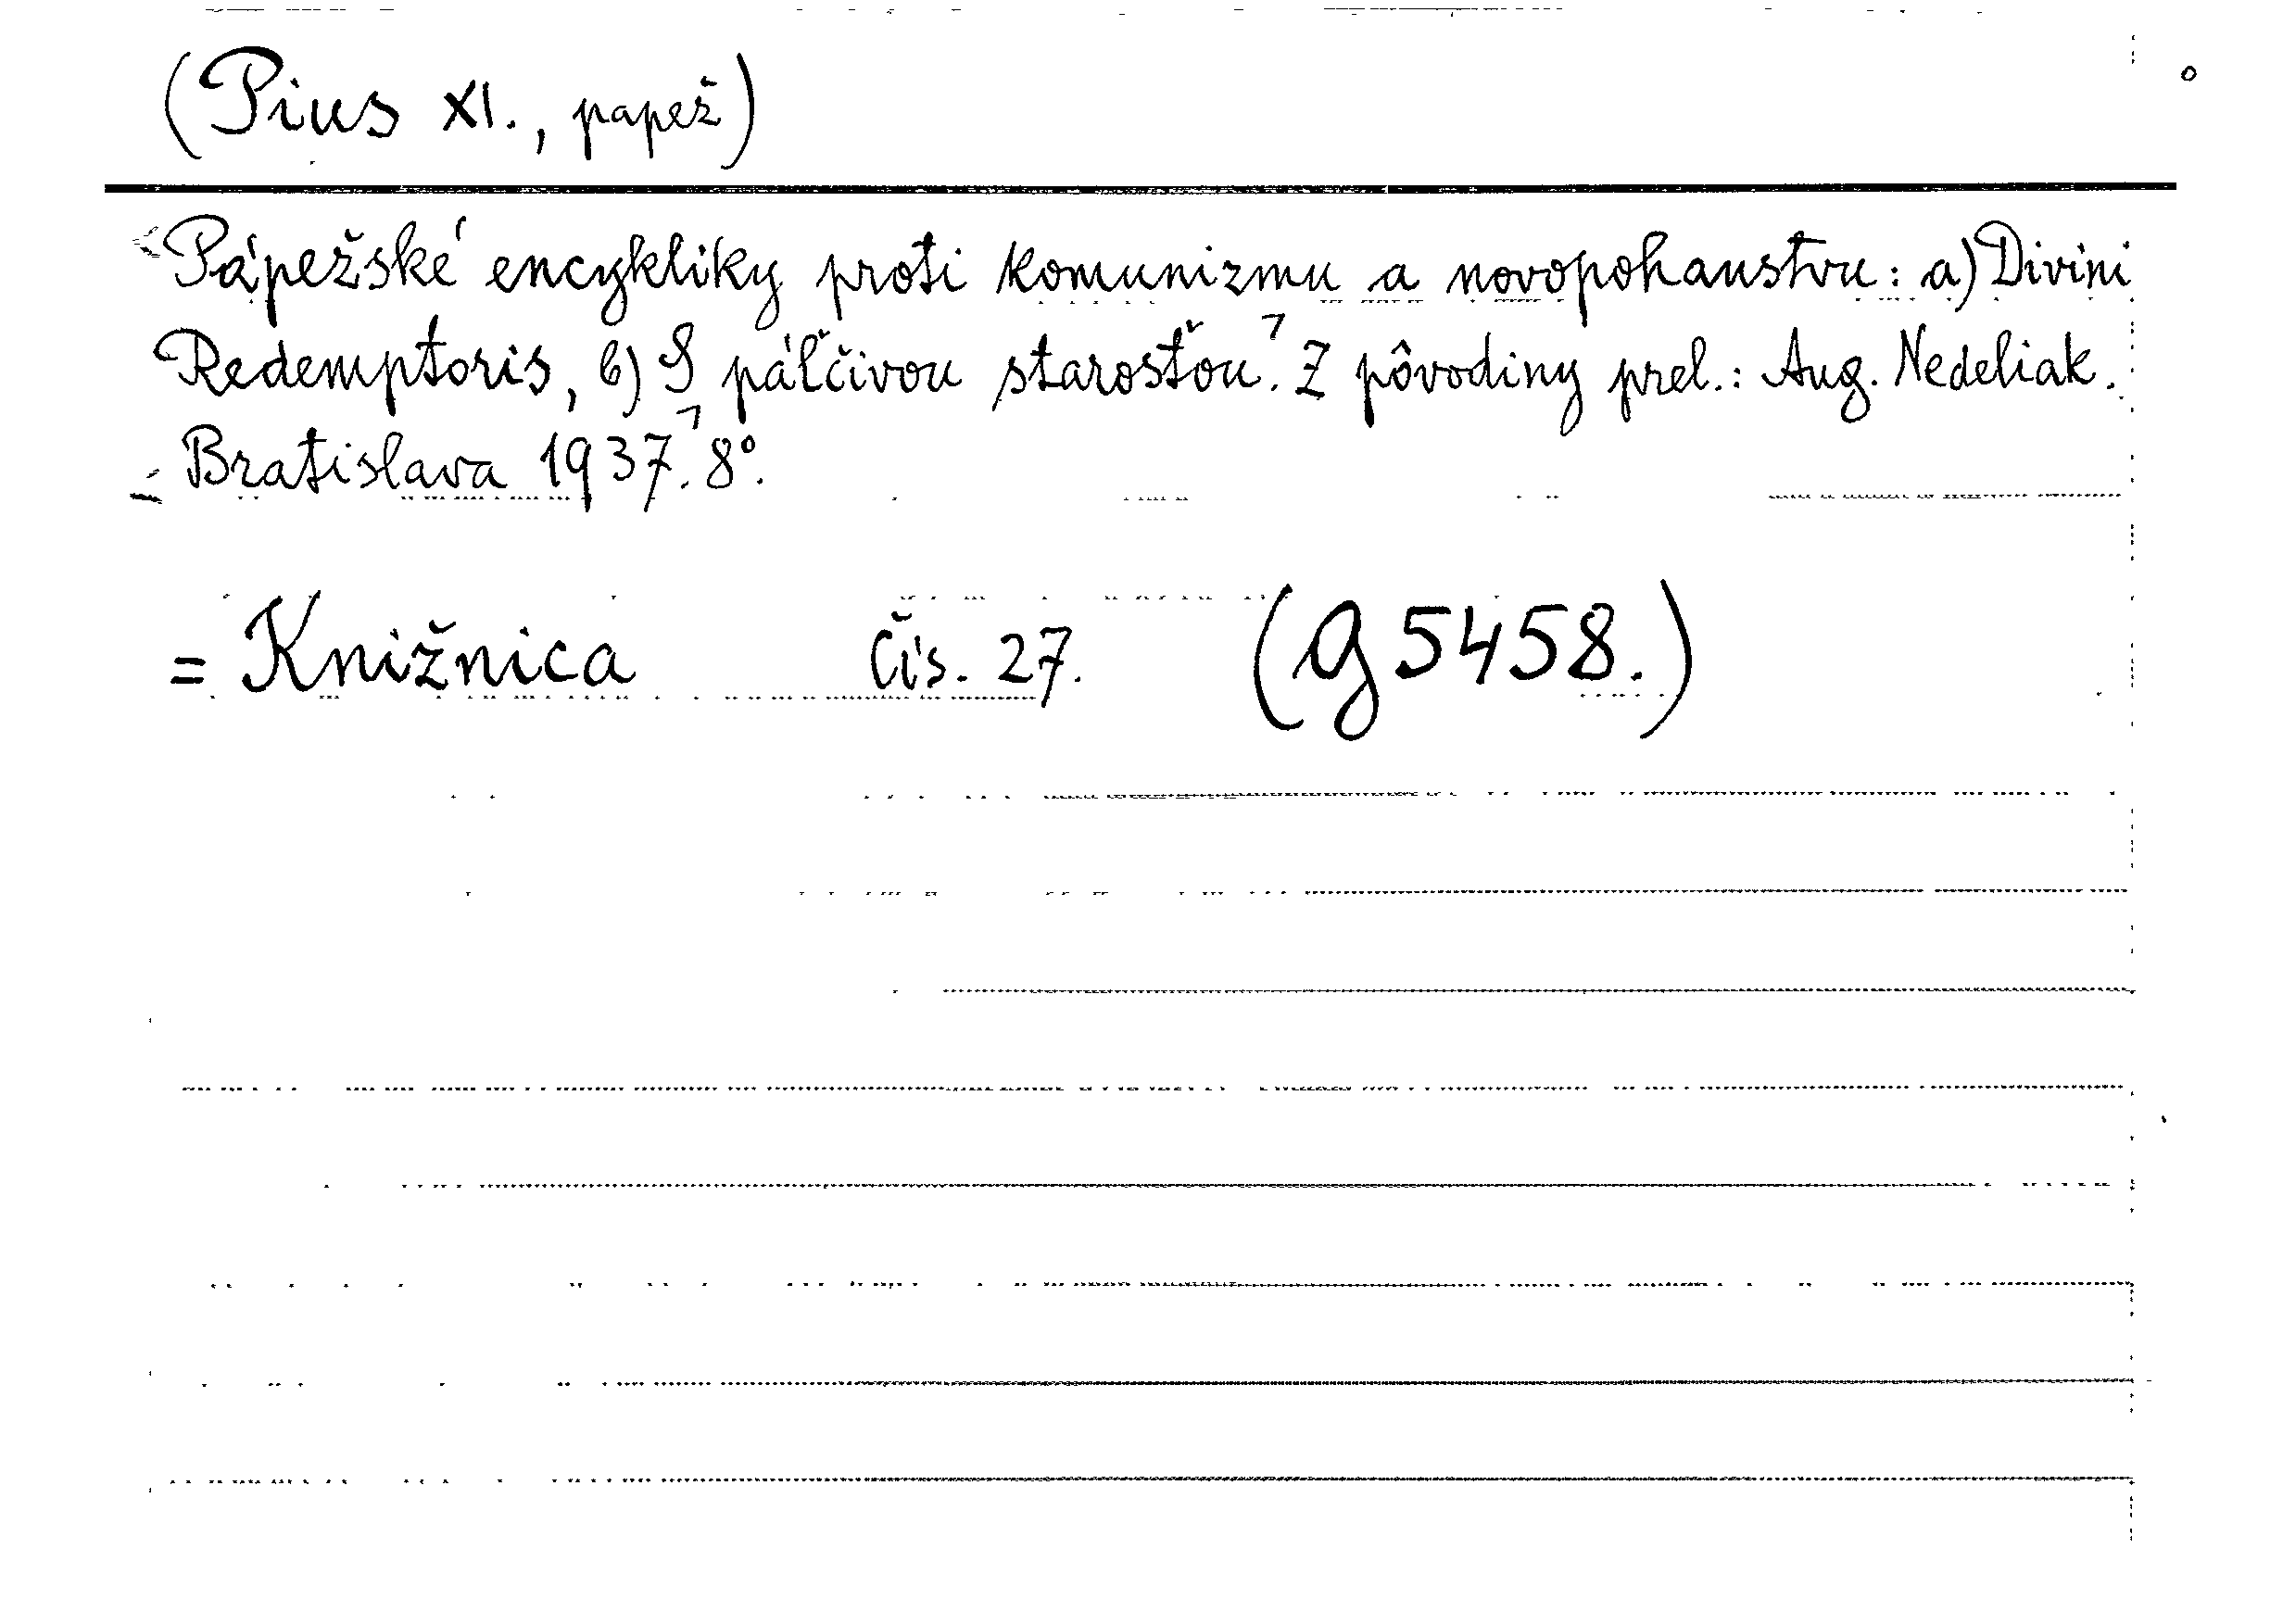 (Pius XI., papež)
Pápežské encykliky proti komunizmu a novopohanstvu: a) Divini
Redemptoris, b) S páľčivou starosťou. Z pôvodiny prel.: Aug. Nedeliak.
Bratislava 1937. 8°.
= Knižnica čís. 27. (g 5458.)